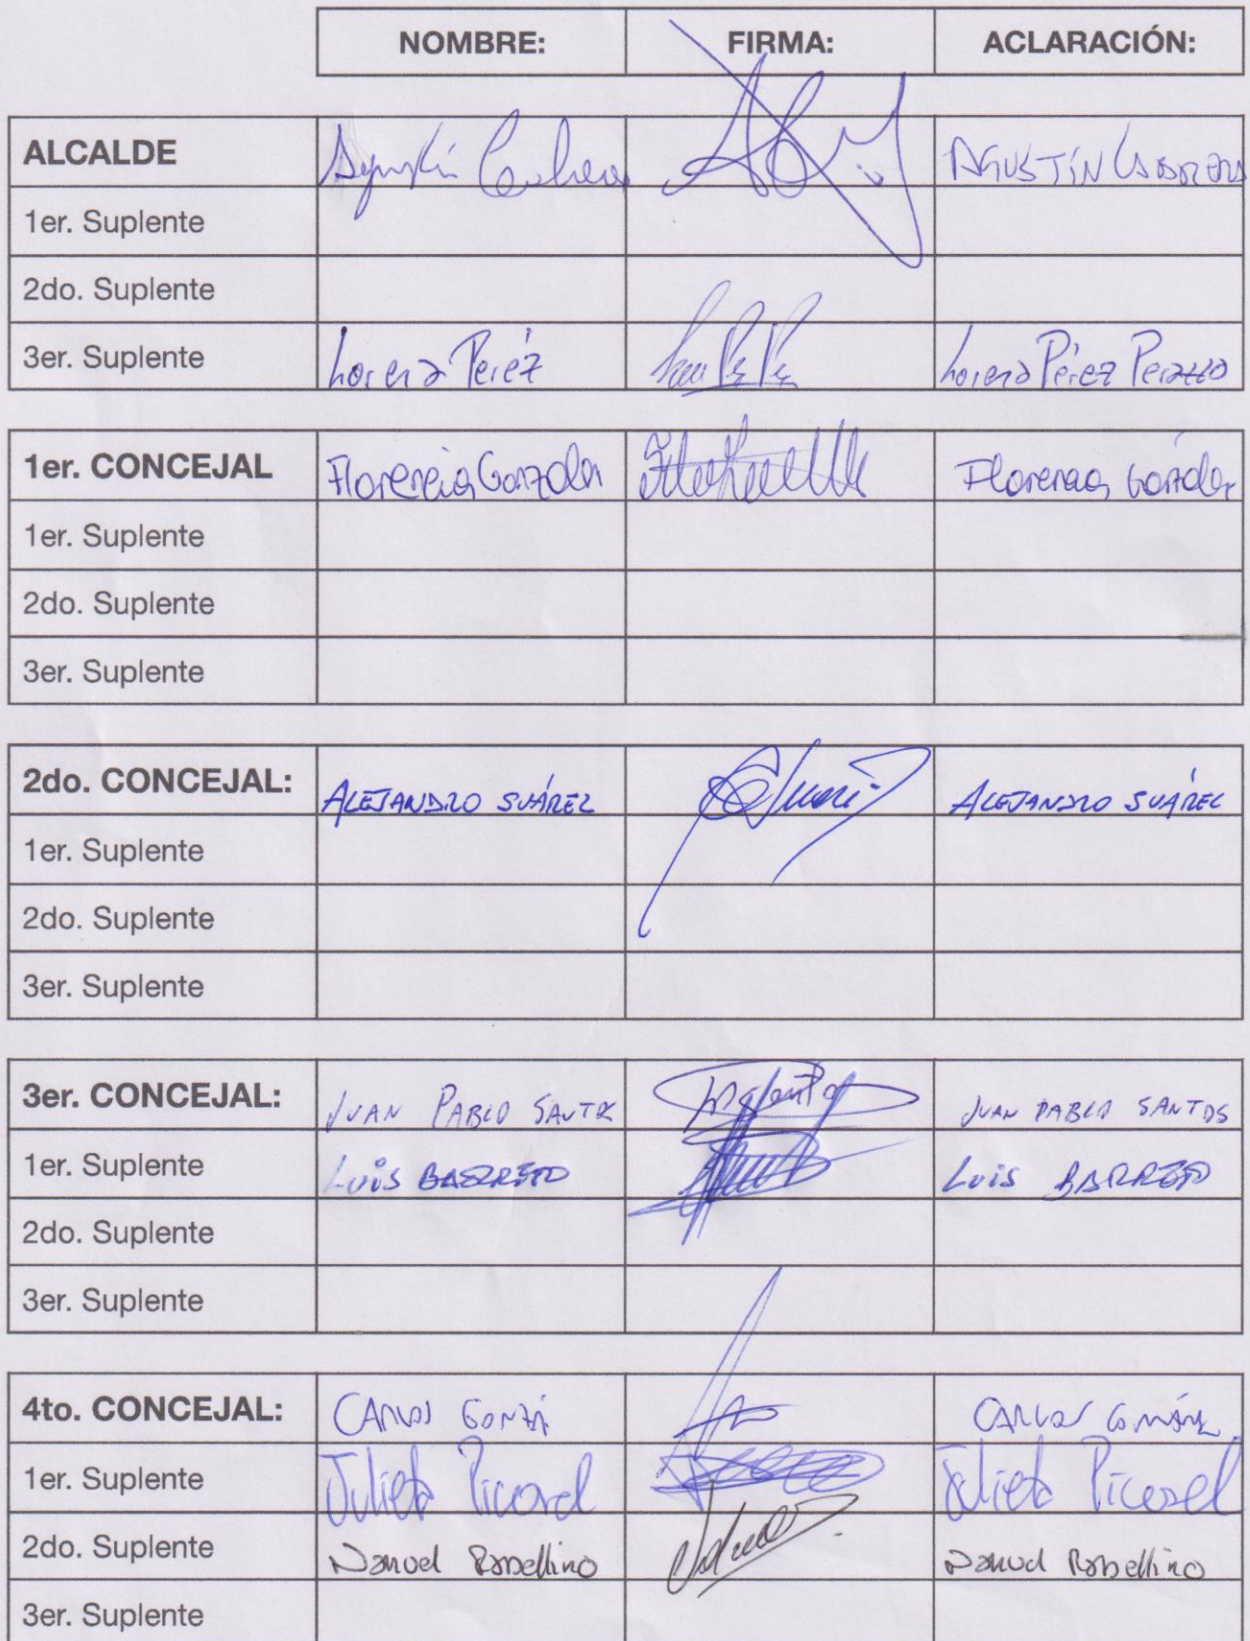 NOMBRE: FIRMA: ACLARACIÓN:
ALCALDE Agustín Cabrera AGUSTÍN CABRERA
1er. Suplente
2do. Suplente
3er. Suplente Lorena Peréz Lorena Pérez Perazzo
1er. CONCEJAL Florencia Gonzalez Florencia Gonzalez
1er. Suplente
2do. Suplente
3er. Suplente
2do. CONCEJAL: ALEJANDRO SUÁREZ ALEJANDRO SUÁREZ
1er. Suplente
2do. Suplente
3er. Suplente
3er. CONCEJAL: JUAN PABLO SANTOS JUAN PABLO SANTOS
1er. Suplente LUIS BARRETO LUIS BARRETO
2do. Suplente
3er. Suplente
4to. CONCEJAL: CARLOS CARLOS
1er. Suplente Julieta Picorel Julieta Picorel
2do. Suplente Robellino Robellino
3er. Suplente